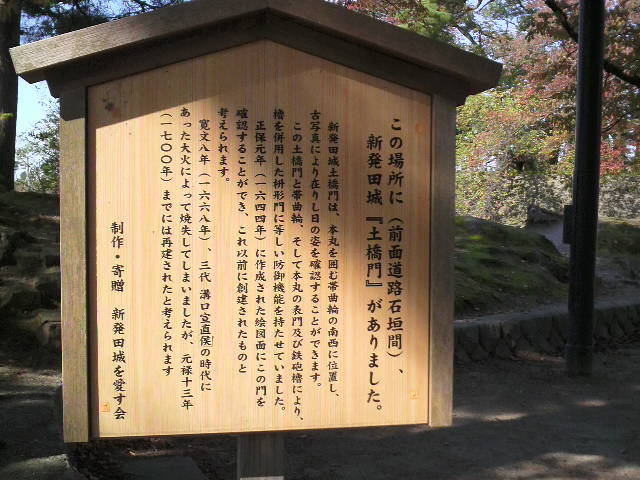 この場所に（前面道路石垣間）、
新発田城『土橋門』がありました。
新発田城土橋門は、本丸を囲む帯曲輪の南西に位置し、
古写真により在りし日の姿を確認することができます。
この土橋門と帯曲輪、そして本丸の表門及び鉄砲櫓により、
櫓を併用した枡形門に等しい防御機能を持たせていました。
正保元年（一六四四年）に作成された絵図面にこの門を
確認することができ、これ以前に創建されたものと
考えられます。
寛文八年（一六六八年）、三代 溝口宣直侯の時代に
あった大火によって焼失してしまいましたが、元禄十三年
（一七〇〇年）までには再建されたと考えられます
制作・寄贈 新発田城を愛す会